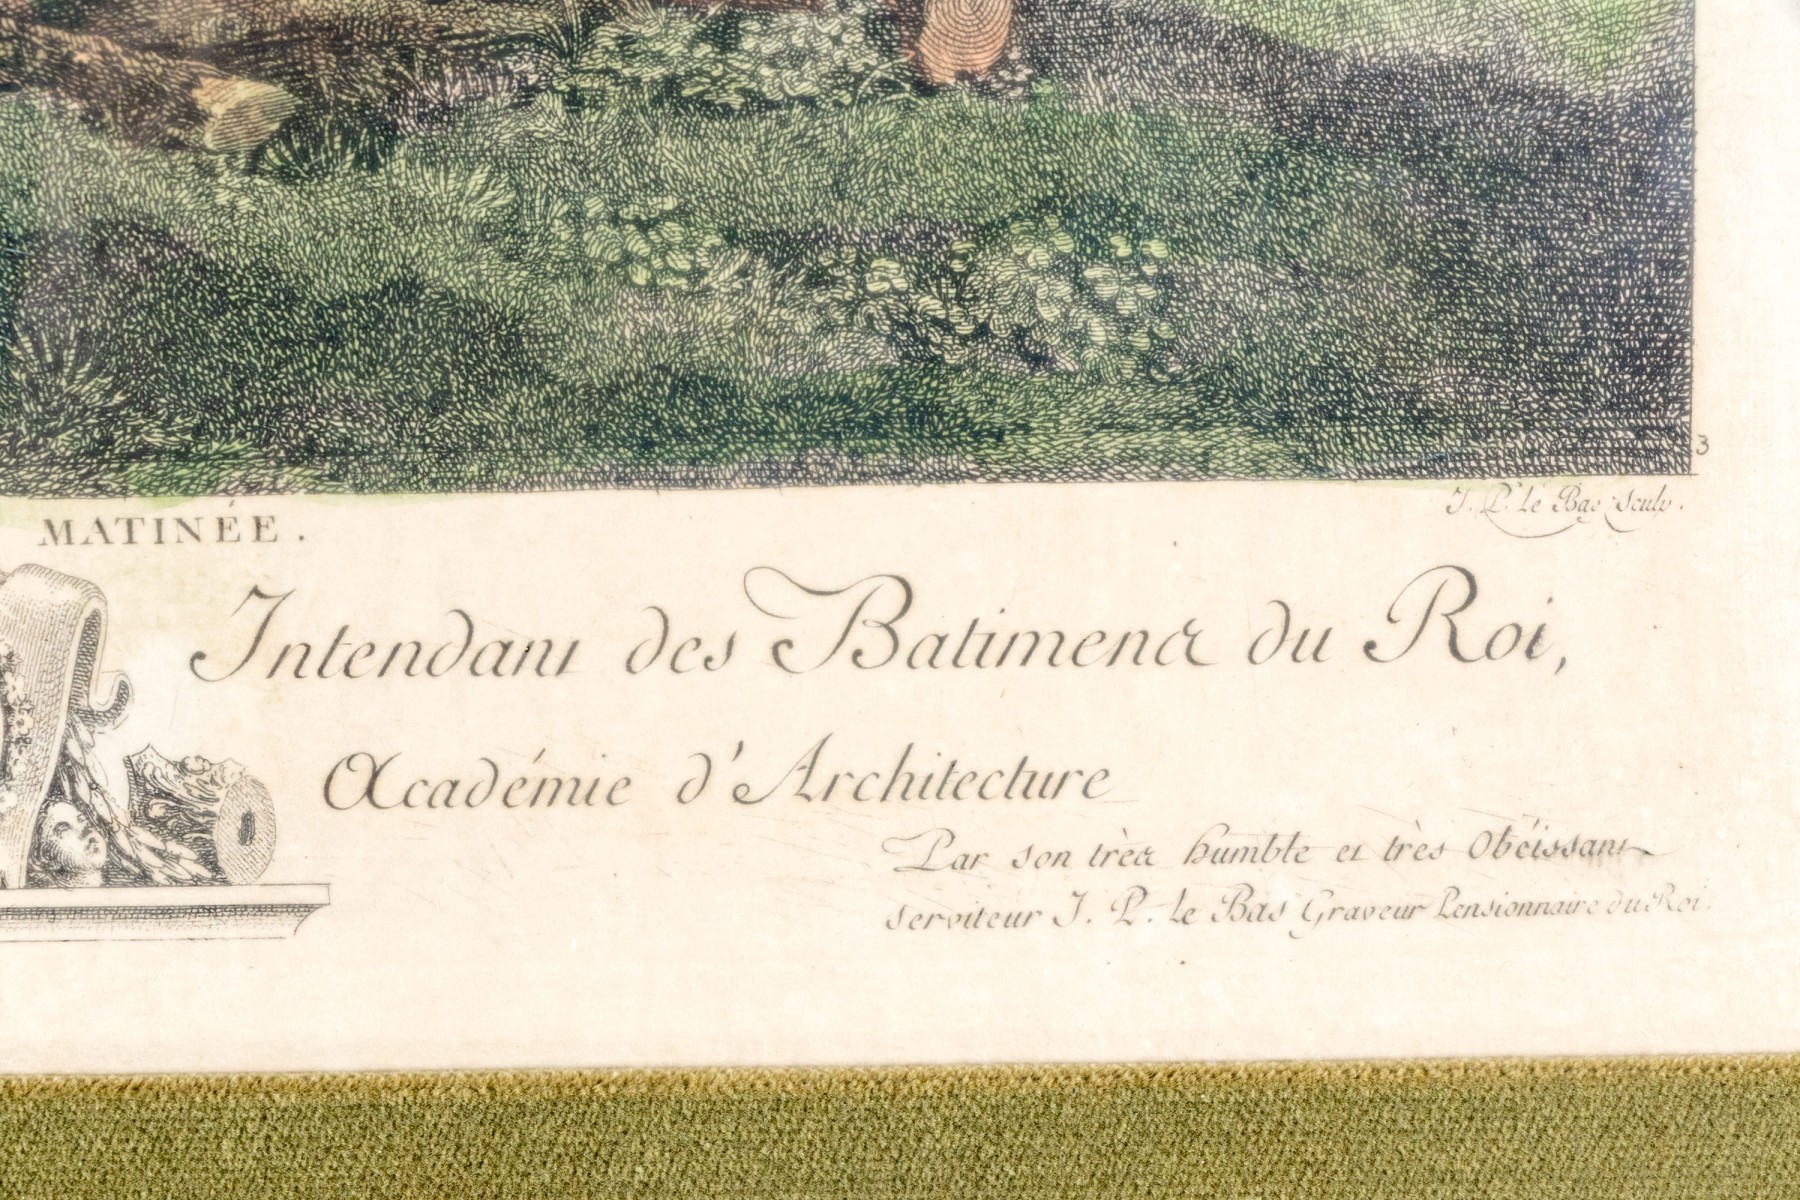 3
J. P. le Bas Sculp.
MATINÉE.
Intendant des Batimens du Roi,
Académie d'Architecture
Par son très humble et très Obéissant
serviteur J. P. le Bas Graveur Pensionnaire du Roi.